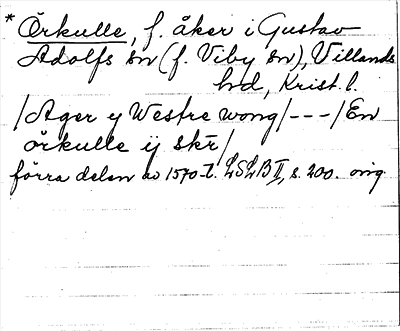 * Örkulle, f. åker i Gustav
Adolfs sn (f. Viby sn), Villands
hd, Krist. l.
/Ager y Westre wong/---/En
örkulle ij skr/
förra delen av 1570-t. LSLB II, s. 200. orig